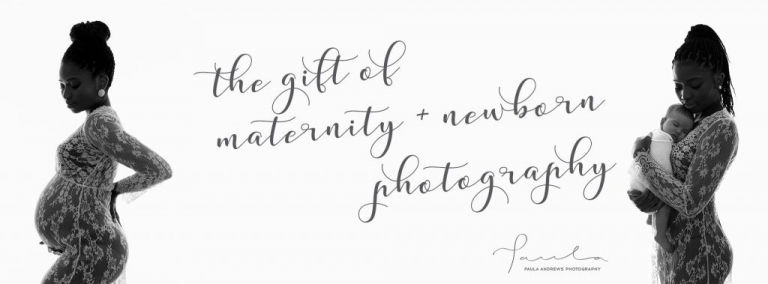 the gift of
maternity + newborn
photography
Paula
PAULA ANDREWS PHOTOGRAPHY